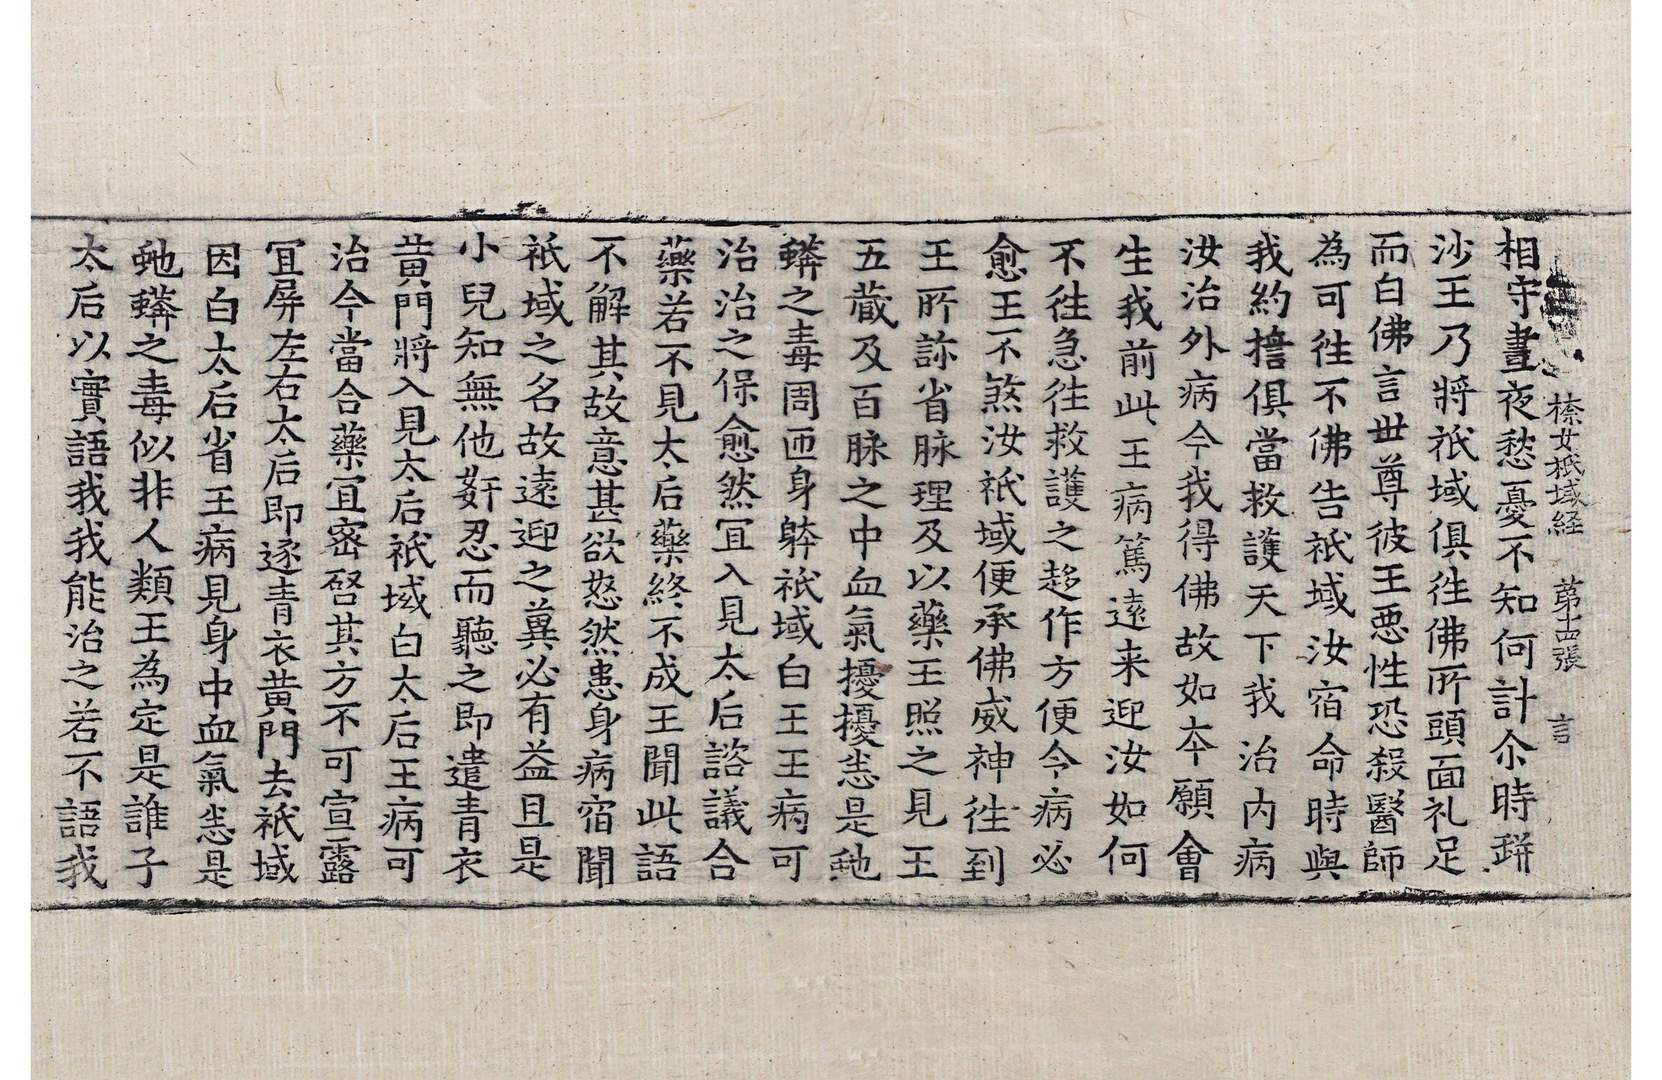 㮈女祇域経 苐十四張 言
相守晝夜愁憂不知何計尒時蓱
沙王乃將祇域俱徃佛所頭面礼足
而白佛言世尊彼王惡性恐殺醫師
為可徃不佛告祇域汝宿命時與
我約擔俱當救護天下我治内病
汝治外病今我得佛故如夲願會
生我前此王病篤遠来迎汝如何
不徃急徃救護之趍作方便令病必
愈王不煞汝祇域便承佛威神徃到
王所診省脉理及以藥王照之見王
五藏及百脉之中血氣擾擾悉是虵
䗬之毒周匝身躰祇域白王王病可
治治之保愈然冝入見太后諮議合
藥若不見太后藥終不成王聞此語
不解其故意甚欲怒然患身病宿聞
祇域之名故遠迎之兾必有益且是
小兒知無他姧忍而聽之即遣青衣
黄門將入見太后祇域白太后王病可
治今當合藥冝密啓其方不可宣露
冝屏左右太后即逐青衣黄門去祇域
因白太后省王病見身中血氣悉是
虵䗬之毒似非人類王為定是誰子
太后以實語我我能治之若不語我